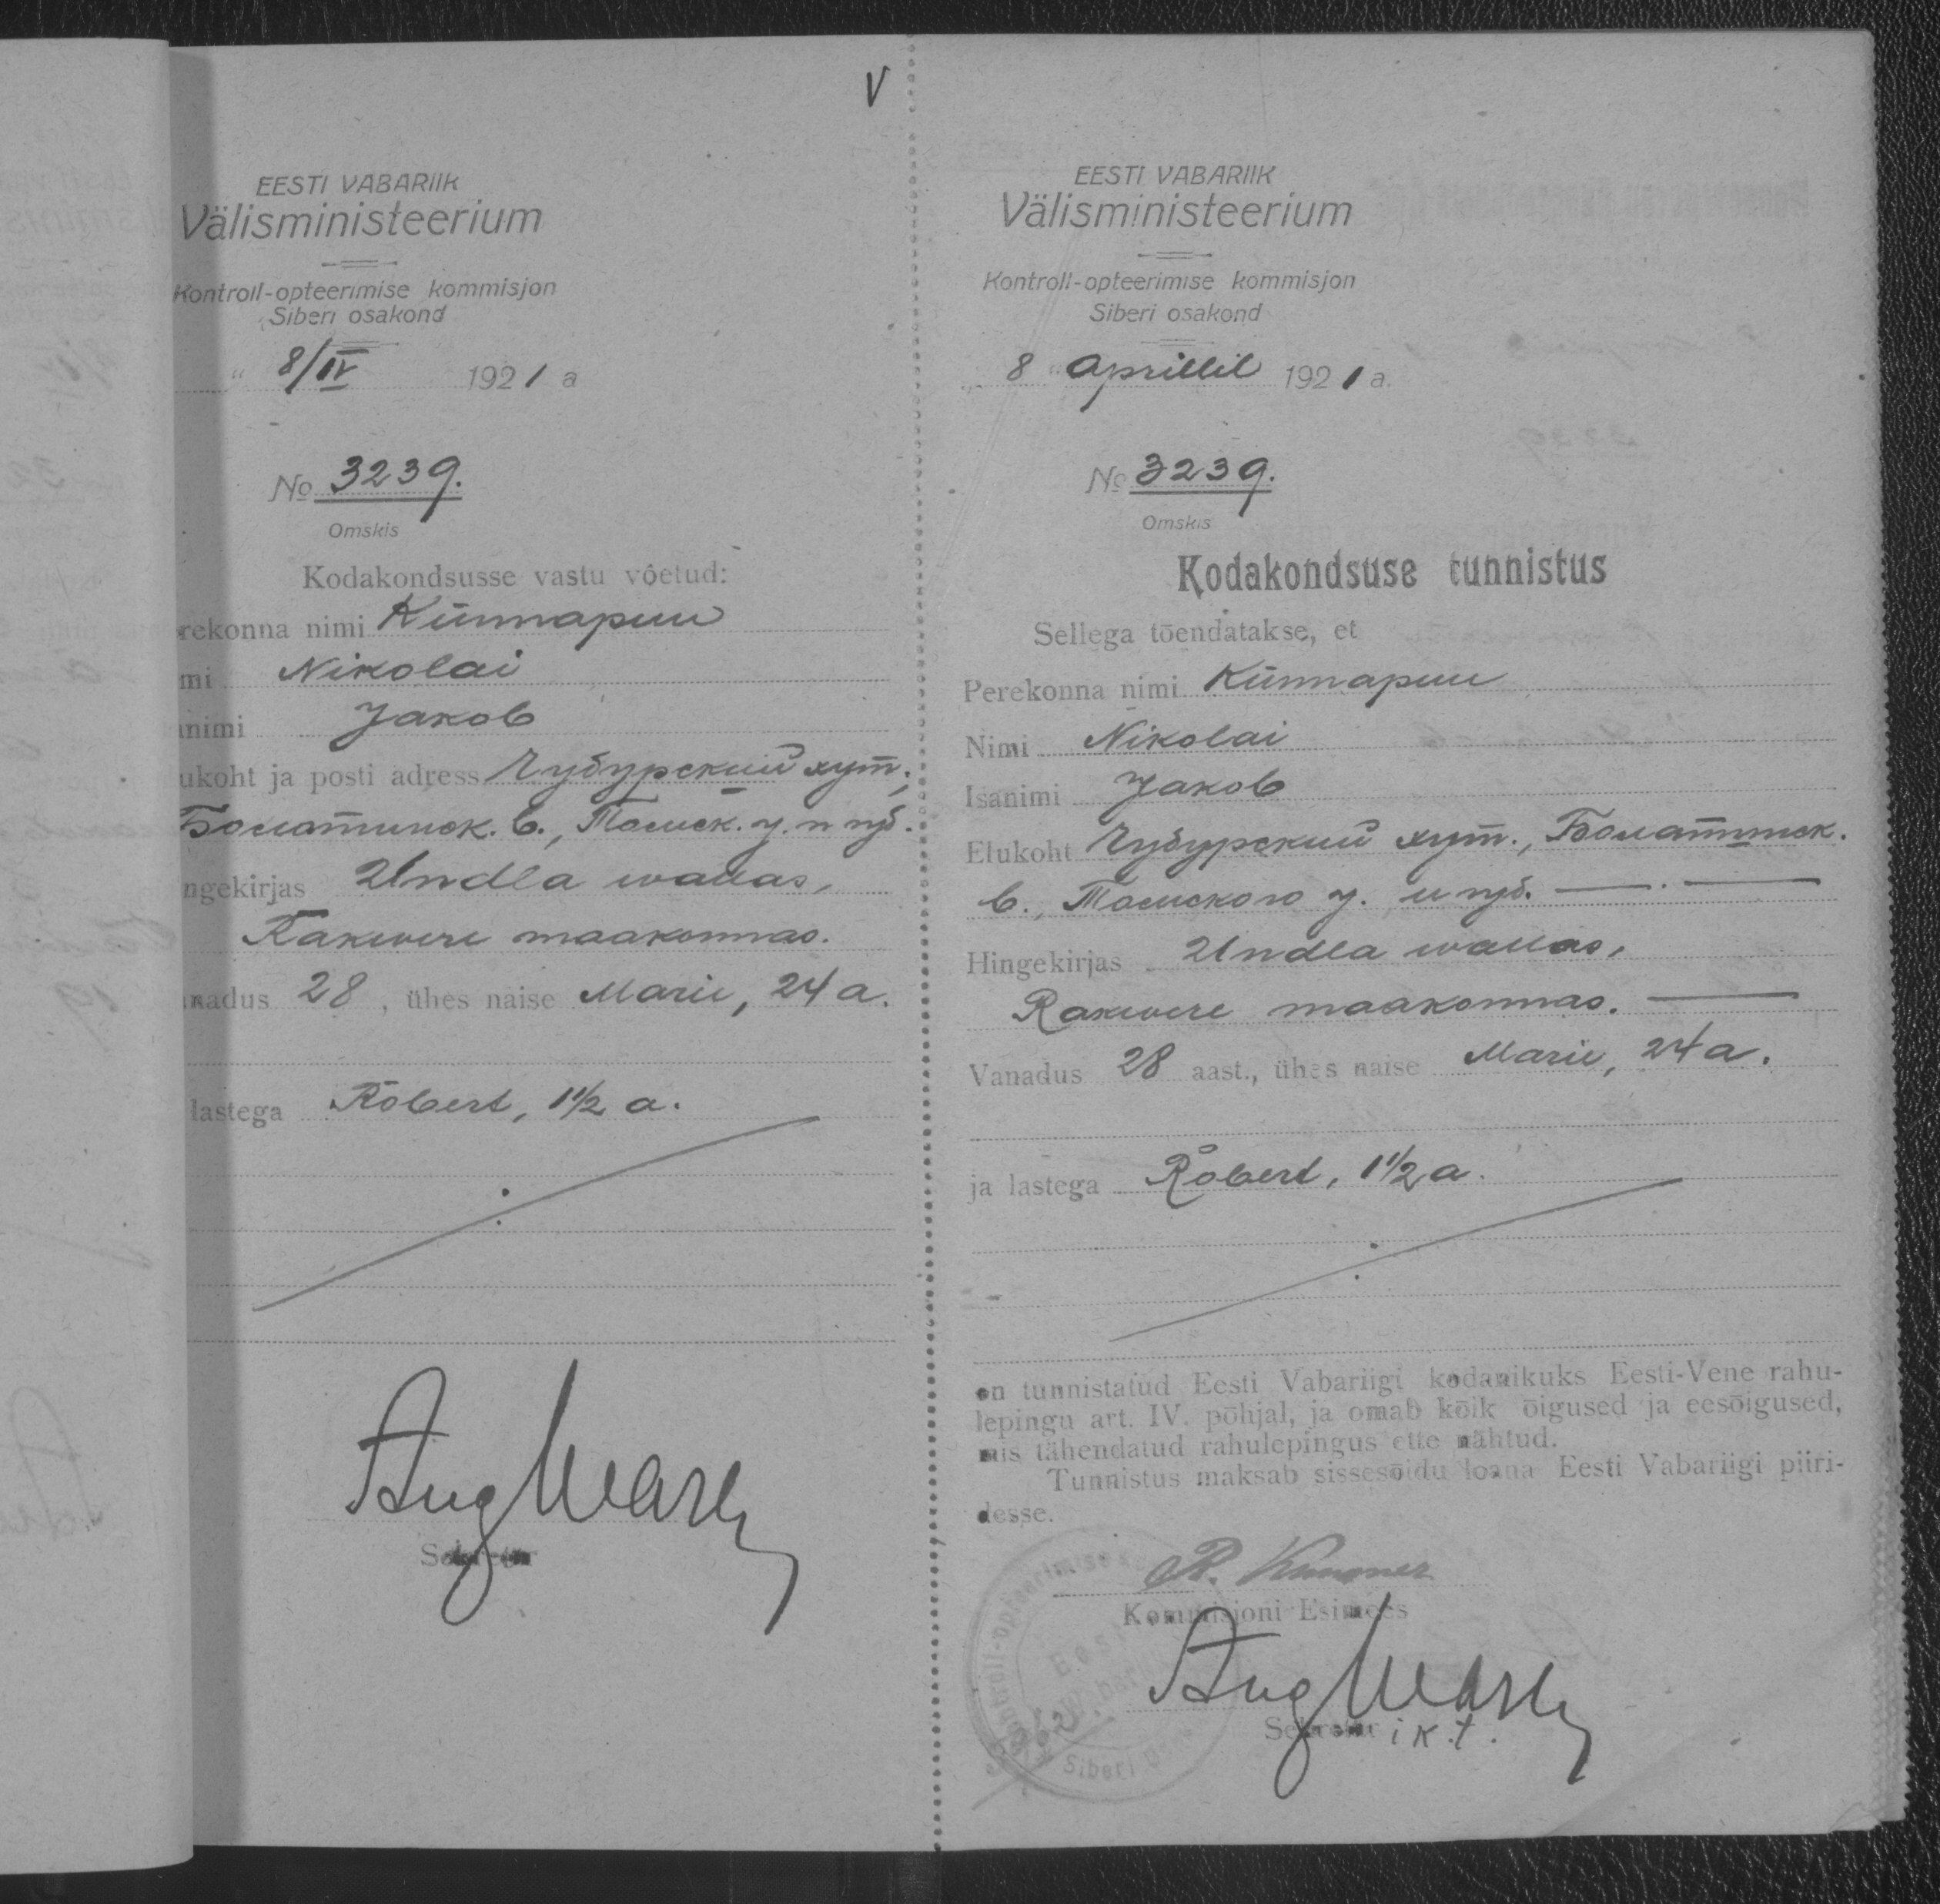 V
EESTI VABARIIK
Välisministeerium
Kontroll-opteerimise kommisjon
Siberi osakond
" 8/IV 1921 a
No 3239.
Omskis
Kodakondsusse vastu võetud:
rekonna nimi Künnapuu
mi Nikolai
animi Jakob
ukoht ja posti adress Чубурский хут.,
Болотинск. в., Томск. у. и губ.
ngekirjas Undla wallas,
Rakwere maakonnas.
nadus 28, ühes naise Marie, 24 a.
lastega Robert, 1 1/2 a.
Aug
Sekretär
EESTI VABARIIK
Välisministeerium
Kontroll-opteerimise kommisjon
Siberi osakond
8 " Aprillil 1921 a.
No 3239.
Omskis
Kodakondsuse tunnistus
Sellega tõendatakse, et
Perekonna nimi Künnapuu
Nimi Nikolai
Isanimi Jakob
Elukoht Чубурский хут., Болотинск.
в., Томского у. и губ.
Hingekirjas Undla wallas,
Rakwere maakonnas.
Vanadus 28 aast., ühes naise Marie, 24 a.
ja lastega Robert, 1 1/2 a.
on tunnistatud Eesti Vabariigi kodanikuks Eesti-Vene rahu-
lepingu art. IV. põhjal, ja omab kõik õigused ja eesõigused,
mis tähendatud rahulepingus ette nähtud.
Tunnistus maksab sissesõidu loana Eesti Vabariigi piiri-
desse.
R.
Kommisjoni Esimees
Aug
Sekretär i.k.t.
Kontroll-opteerimise
Eesti
Siberi